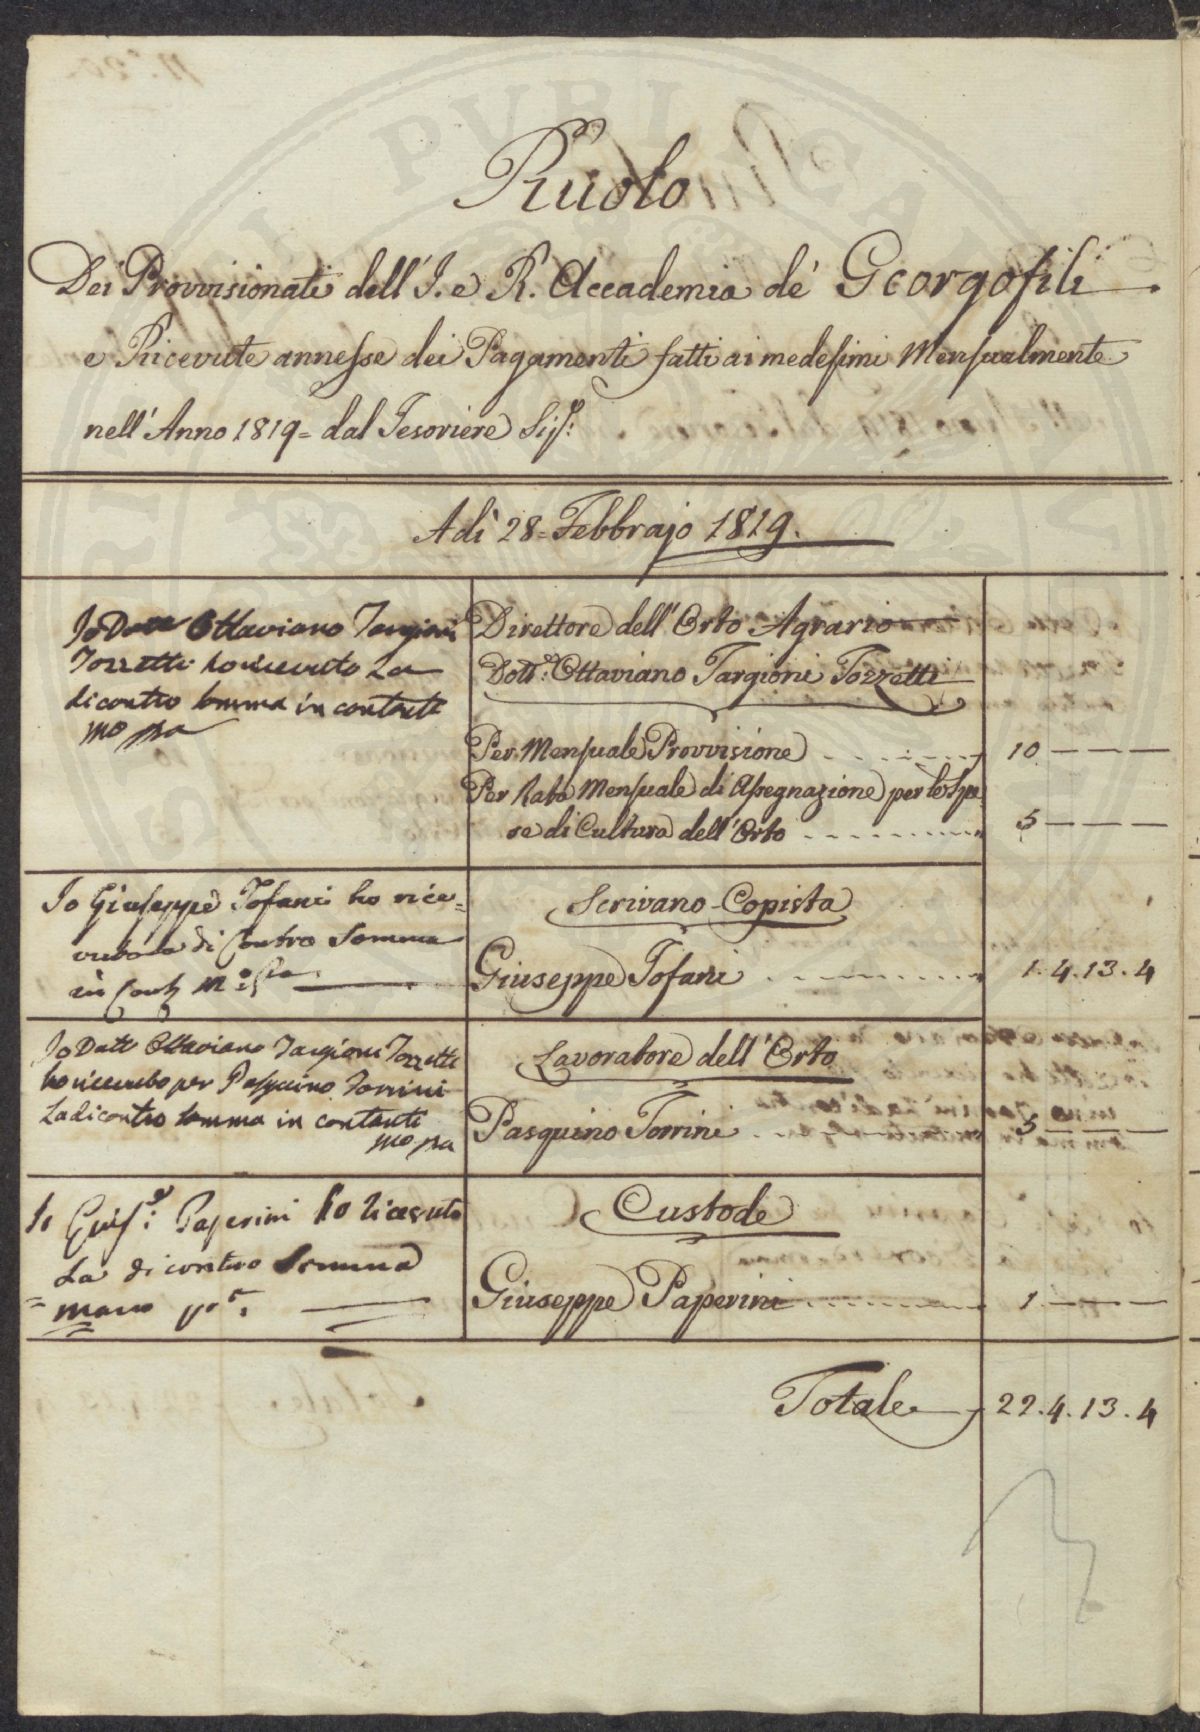 Ruolo
Dei Provvisionati dell'I. e R. Accademia de' Georgofili
e Ricevute annesse dei Pagamenti fatti ai medesimi Mensualmente
nell'Anno 1819= dal Tesoriere Sig.:
Adi 28= Febbrajo 1819.
Io Dott Ottaviano Targioni
Tozzetti ho ricevuto La
di contro somma in contanti
mo pa
Direttore dell'Orto Agrario
Dott.: Ottaviano Targioni Tozzetti
Per Mensuale Provvisione 10 — — —
Per Rata Mensuale di Assegnazione per le Spe
se di Cultura dell'Orto 5 — — —
Io Giuseppe Tofani ho rice=
vuto la di Contro Somma
in Cont M.o Pa
Scrivano Copista
Giuseppe Tofani 1. 4. 13. 4
Io Dott Ottaviano Targioni Tozzetti
ho ricevuto per Pasquino Torrini
La di contro somma in contanti
mo pa
Lavoratore dell'Orto
Pasquino Torrini 5 — — —
Io Gius.: Paperini ho ricevuto
La di contro Somma
= mano
Custode
Giuseppe Paperini 1 — — —
Totale 22. 4. 13. 4
PUBLICA